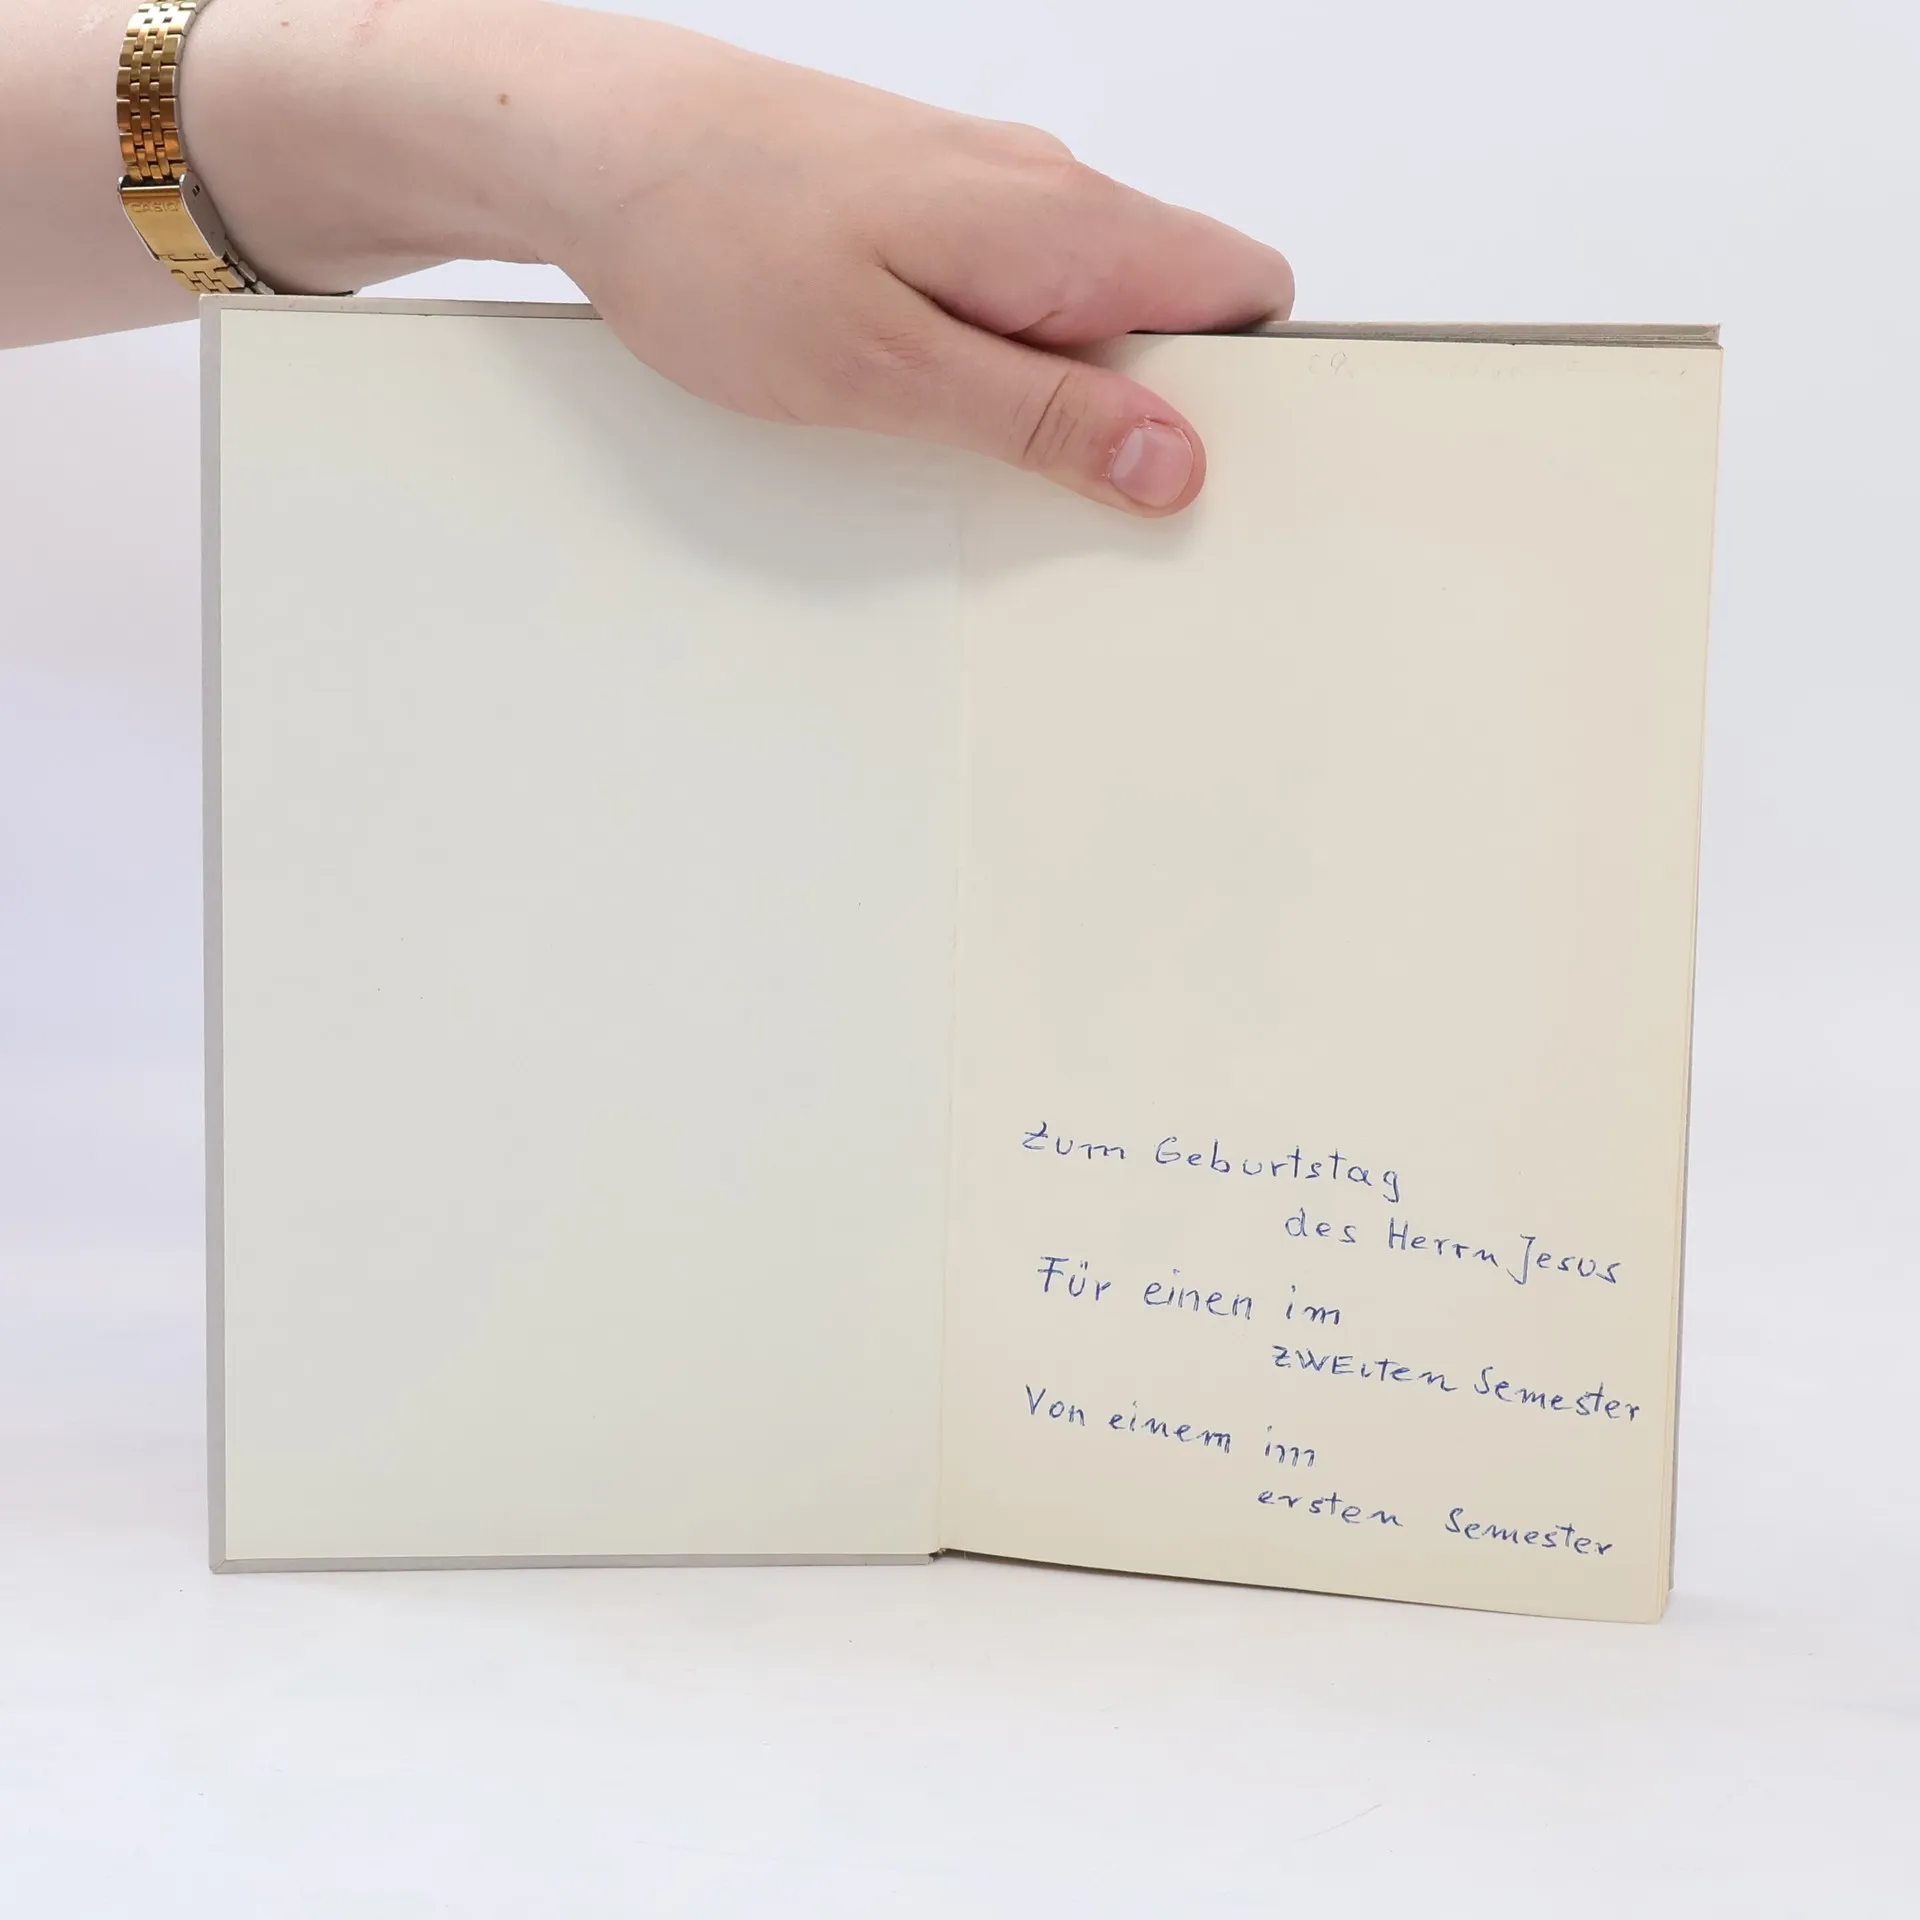 CASIO
Zum Geburtstag
des Herrn Jesus
Für einen im
ZWEITEN Semester
Von einem im
ersten Semester